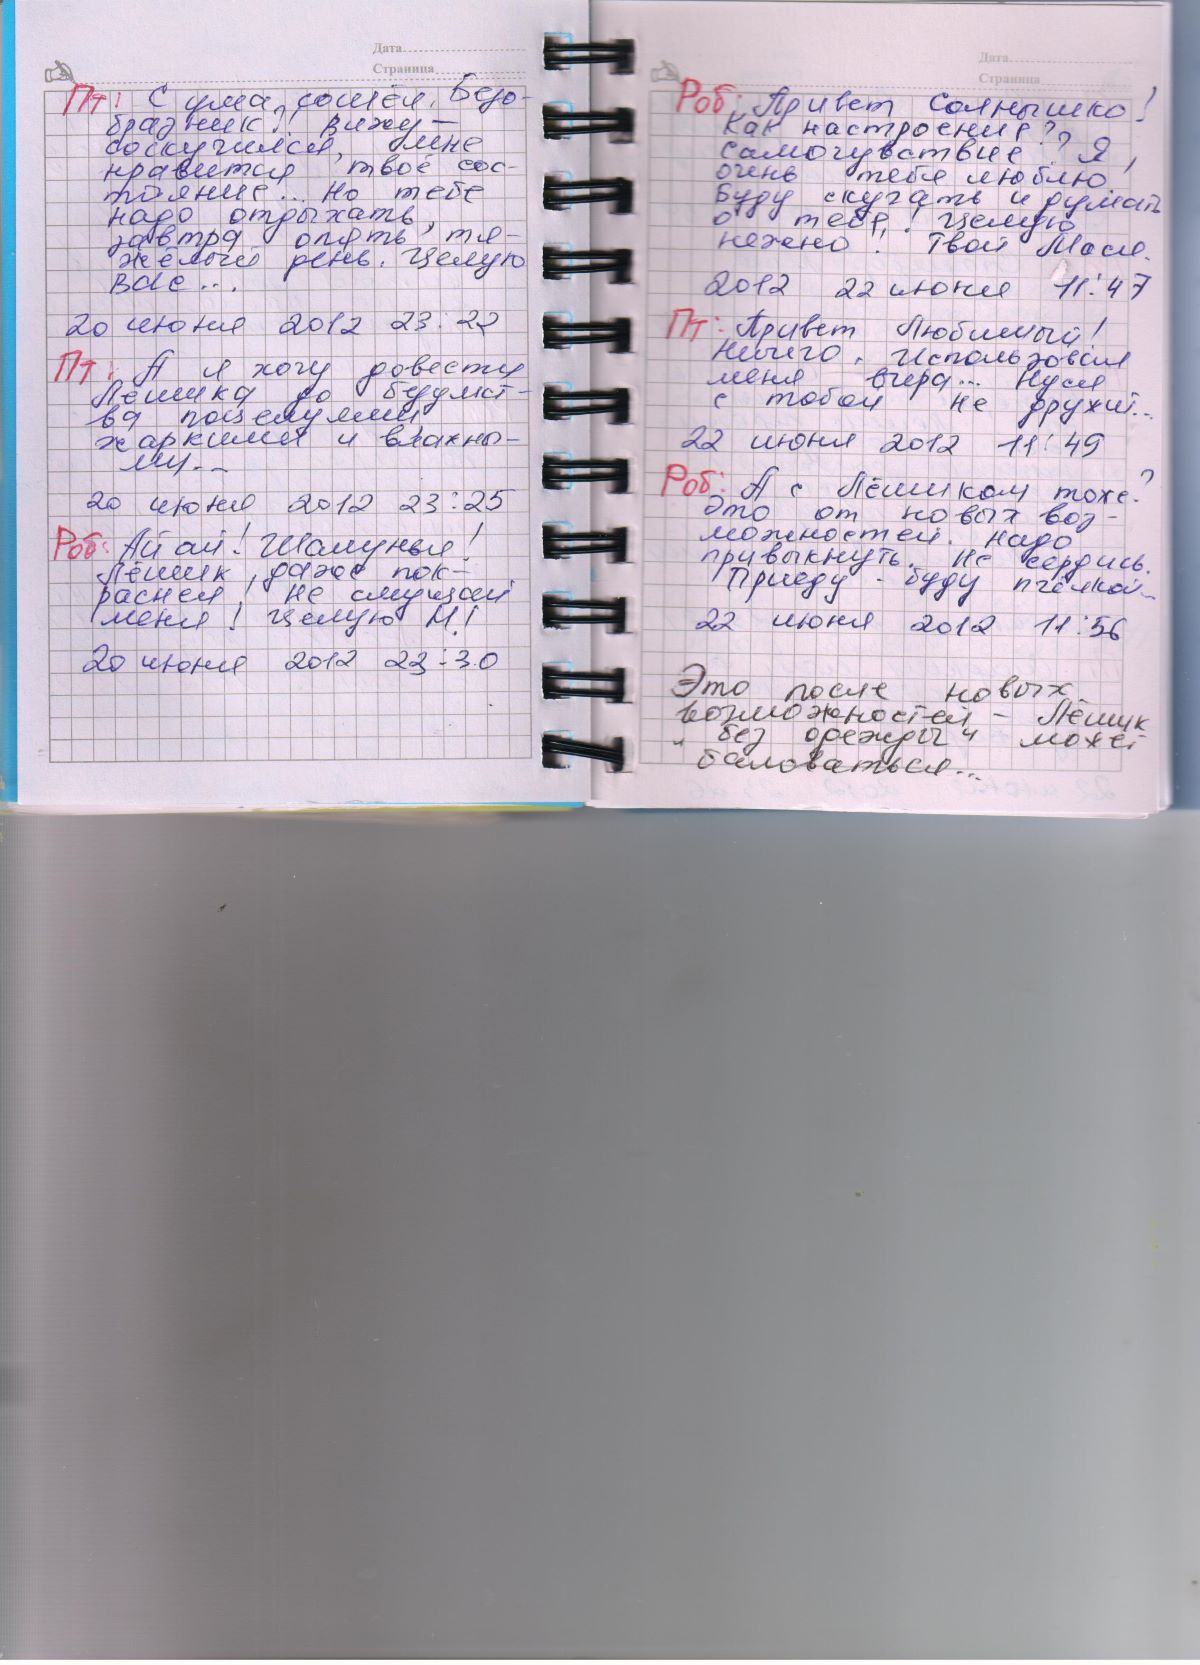 Дата
Страница
Пт: С ума сошёл. Безо-
бразник!! Вижу –
соскучился, мне
нравится твоё сос-
тояние... Но тебе
надо отдыхать,
завтра опять тя-
жёлый день. Целую
Вас...
20 июня 2012 23:22
Пт: А я хочу довести
Лёшика до безумст-
ва поцелуями
жаркими и влажны-
ми...
20 июня 2012 23:25
Роб: Ай ай! Шалунья!
Лёшик даже пок-
раснел! Не смущай
меня! Целую М!
20 июня 2012 23:30
Дата
Страница
Роб: Привет Солнышко!
Как настроение?
Самочувствие? Я
очень тебя люблю!
Буду скучать и думать
о тебе! Целую
нежно! Твой Мася.
2012 22 июня 11:47
Пт: Привет Любимый!
Ничего. Использовал
меня вчера... Нуся
с тобой не дружит...
22 июня 2012 11:49
Роб: А с Лёшиком тоже?
Это от новых воз-
можностей. Надо
привыкнуть. Не сердись.
Приеду – буду пчёлкой...
22 июня 2012 11:56
Это после новых
возможностей – Лёшик
без одежды может
баловаться...